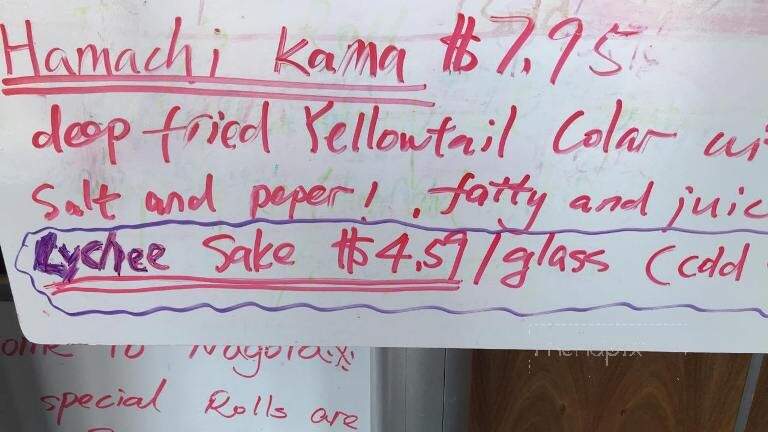 Hamachi Kama $7.95
deep fried Yellowtail Colar wi
Salt and peper! . fatty and juic
Lychee Sake $4.59/glass (cold
to Nagoya!
special Rolls are